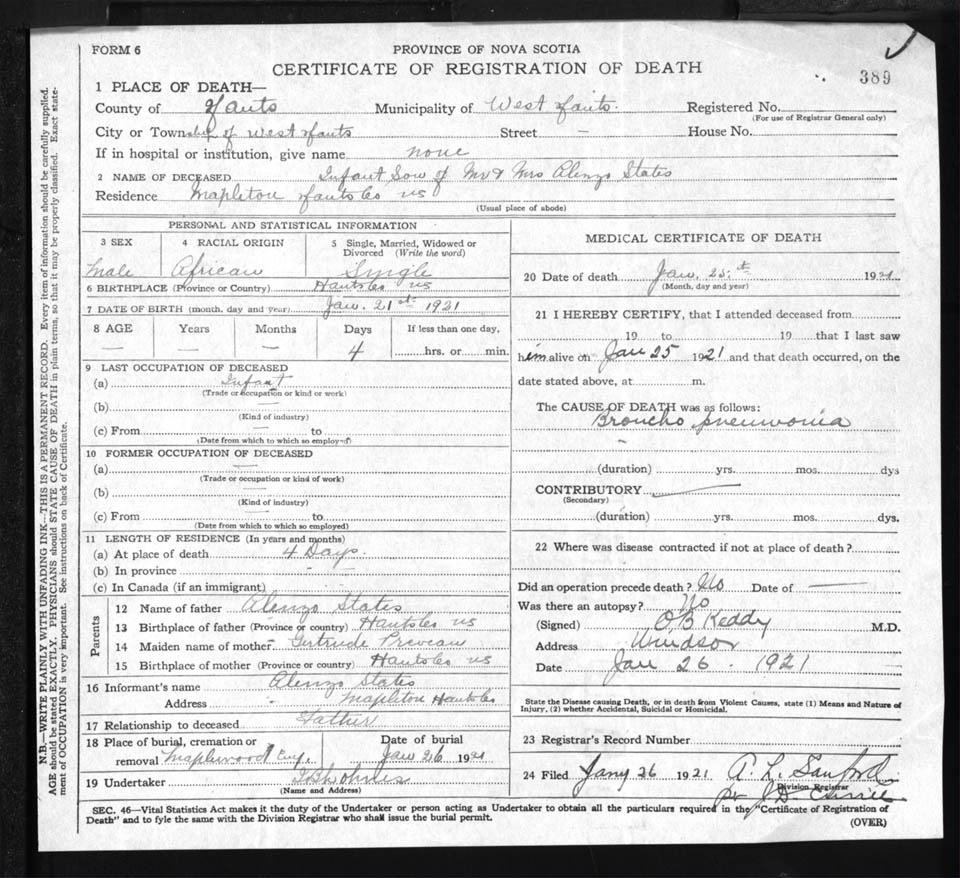 FORM 6
PROVINCE OF NOVA SCOTIA
CERTIFICATE OF REGISTRATION OF DEATH
389
1 PLACE OF DEATH—
County of Hants Municipality of West Hants. Registered No.
(For use of Registrar General only)
City or Township of West Hants Street — House No.
If in hospital or institution, give name none
2 NAME OF DECEASED Infant Son of Mr & Mrs Alenzo States
Residence Mapleton Hants Co NS
(Usual place of abode)
PERSONAL AND STATISTICAL INFORMATION
3 SEX 4 RACIAL ORIGIN 5 Single, Married, Widowed or Divorced (Write the word)
Male African Single
6 BIRTHPLACE (Province or Country) Hants Co NS
7 DATE OF BIRTH (month, day and year) Jan. 21st 1921
8 AGE Years Months Days If less than one day,
— — 4 hrs. or min.
9 LAST OCCUPATION OF DECEASED
(a) Infant
(Trade or occupation or kind or work)
(b) —
(Kind of industry)
(c) From — to
(Date from which to which so employed)
10 FORMER OCCUPATION OF DECEASED
(a) —
(Trade or occupation or kind of work)
(b) —
(Kind of industry)
(c) From — to
(Date from which to which so employed)
11 LENGTH OF RESIDENCE (In years and months)
(a) At place of death 4 Days.
(b) In province - -
(c) In Canada (if an immigrant) -
Parents
12 Name of father Alenzo States
13 Birthplace of father (Province or country) Hants Co NS
14 Maiden name of mother Gertrude
15 Birthplace of mother (Province or country) Hants Co NS
16 Informant's name Alenzo States
Address Mapleton Hants Co
17 Relationship to deceased Father
18 Place of burial, cremation or removal Maplewood Date of burial Jan 26 1921
19 Undertaker
(Name and Address)
MEDICAL CERTIFICATE OF DEATH
20 Date of death Jan. 25th 1921
(Month, day and year)
21 I HEREBY CERTIFY, that I attended deceased from
19 to 19 that I last saw
him alive on Jan 25 1921 and that death occurred, on the
date stated above, at m.
The CAUSE OF DEATH was as follows:
Broncho pneumonia
(duration) yrs. mos. dys
CONTRIBUTORY —
(Secondary)
(duration) yrs. mos. dys.
22 Where was disease contracted if not at place of death?
Did an operation precede death? No Date of —
Was there an autopsy? No
(Signed) O B Keddy M.D.
Address Windsor
Date Jan 26. 1921
State the Disease causing Death, or in death from Violent Causes, state (1) Means and Nature of
Injury, (2) whether Accidental, Suicidal or Homicidal.
23 Registrar's Record Number
24 Filed Jany 26 1921 A. L. Sanford
Division Registrar
SEC. 46—Vital Statistics Act makes it the duty of the Undertaker or person acting as Undertaker to obtain all the particulars required in the "Certificate of Registration of
Death" and to fyle the same with the Division Registrar who shall issue the burial permit.
(OVER)
N.B.—WRITE PLAINLY WITH UNFADING INK—THIS IS A PERMANENT RECORD. Every item of information should be carefully supplied.
AGE should be stated EXACTLY. PHYSICIANS should STATE CAUSE OF DEATH in plain terms, so that it may be properly classified. Exact state-
ment of OCCUPATION is very important. See instructions on back of Certificate.